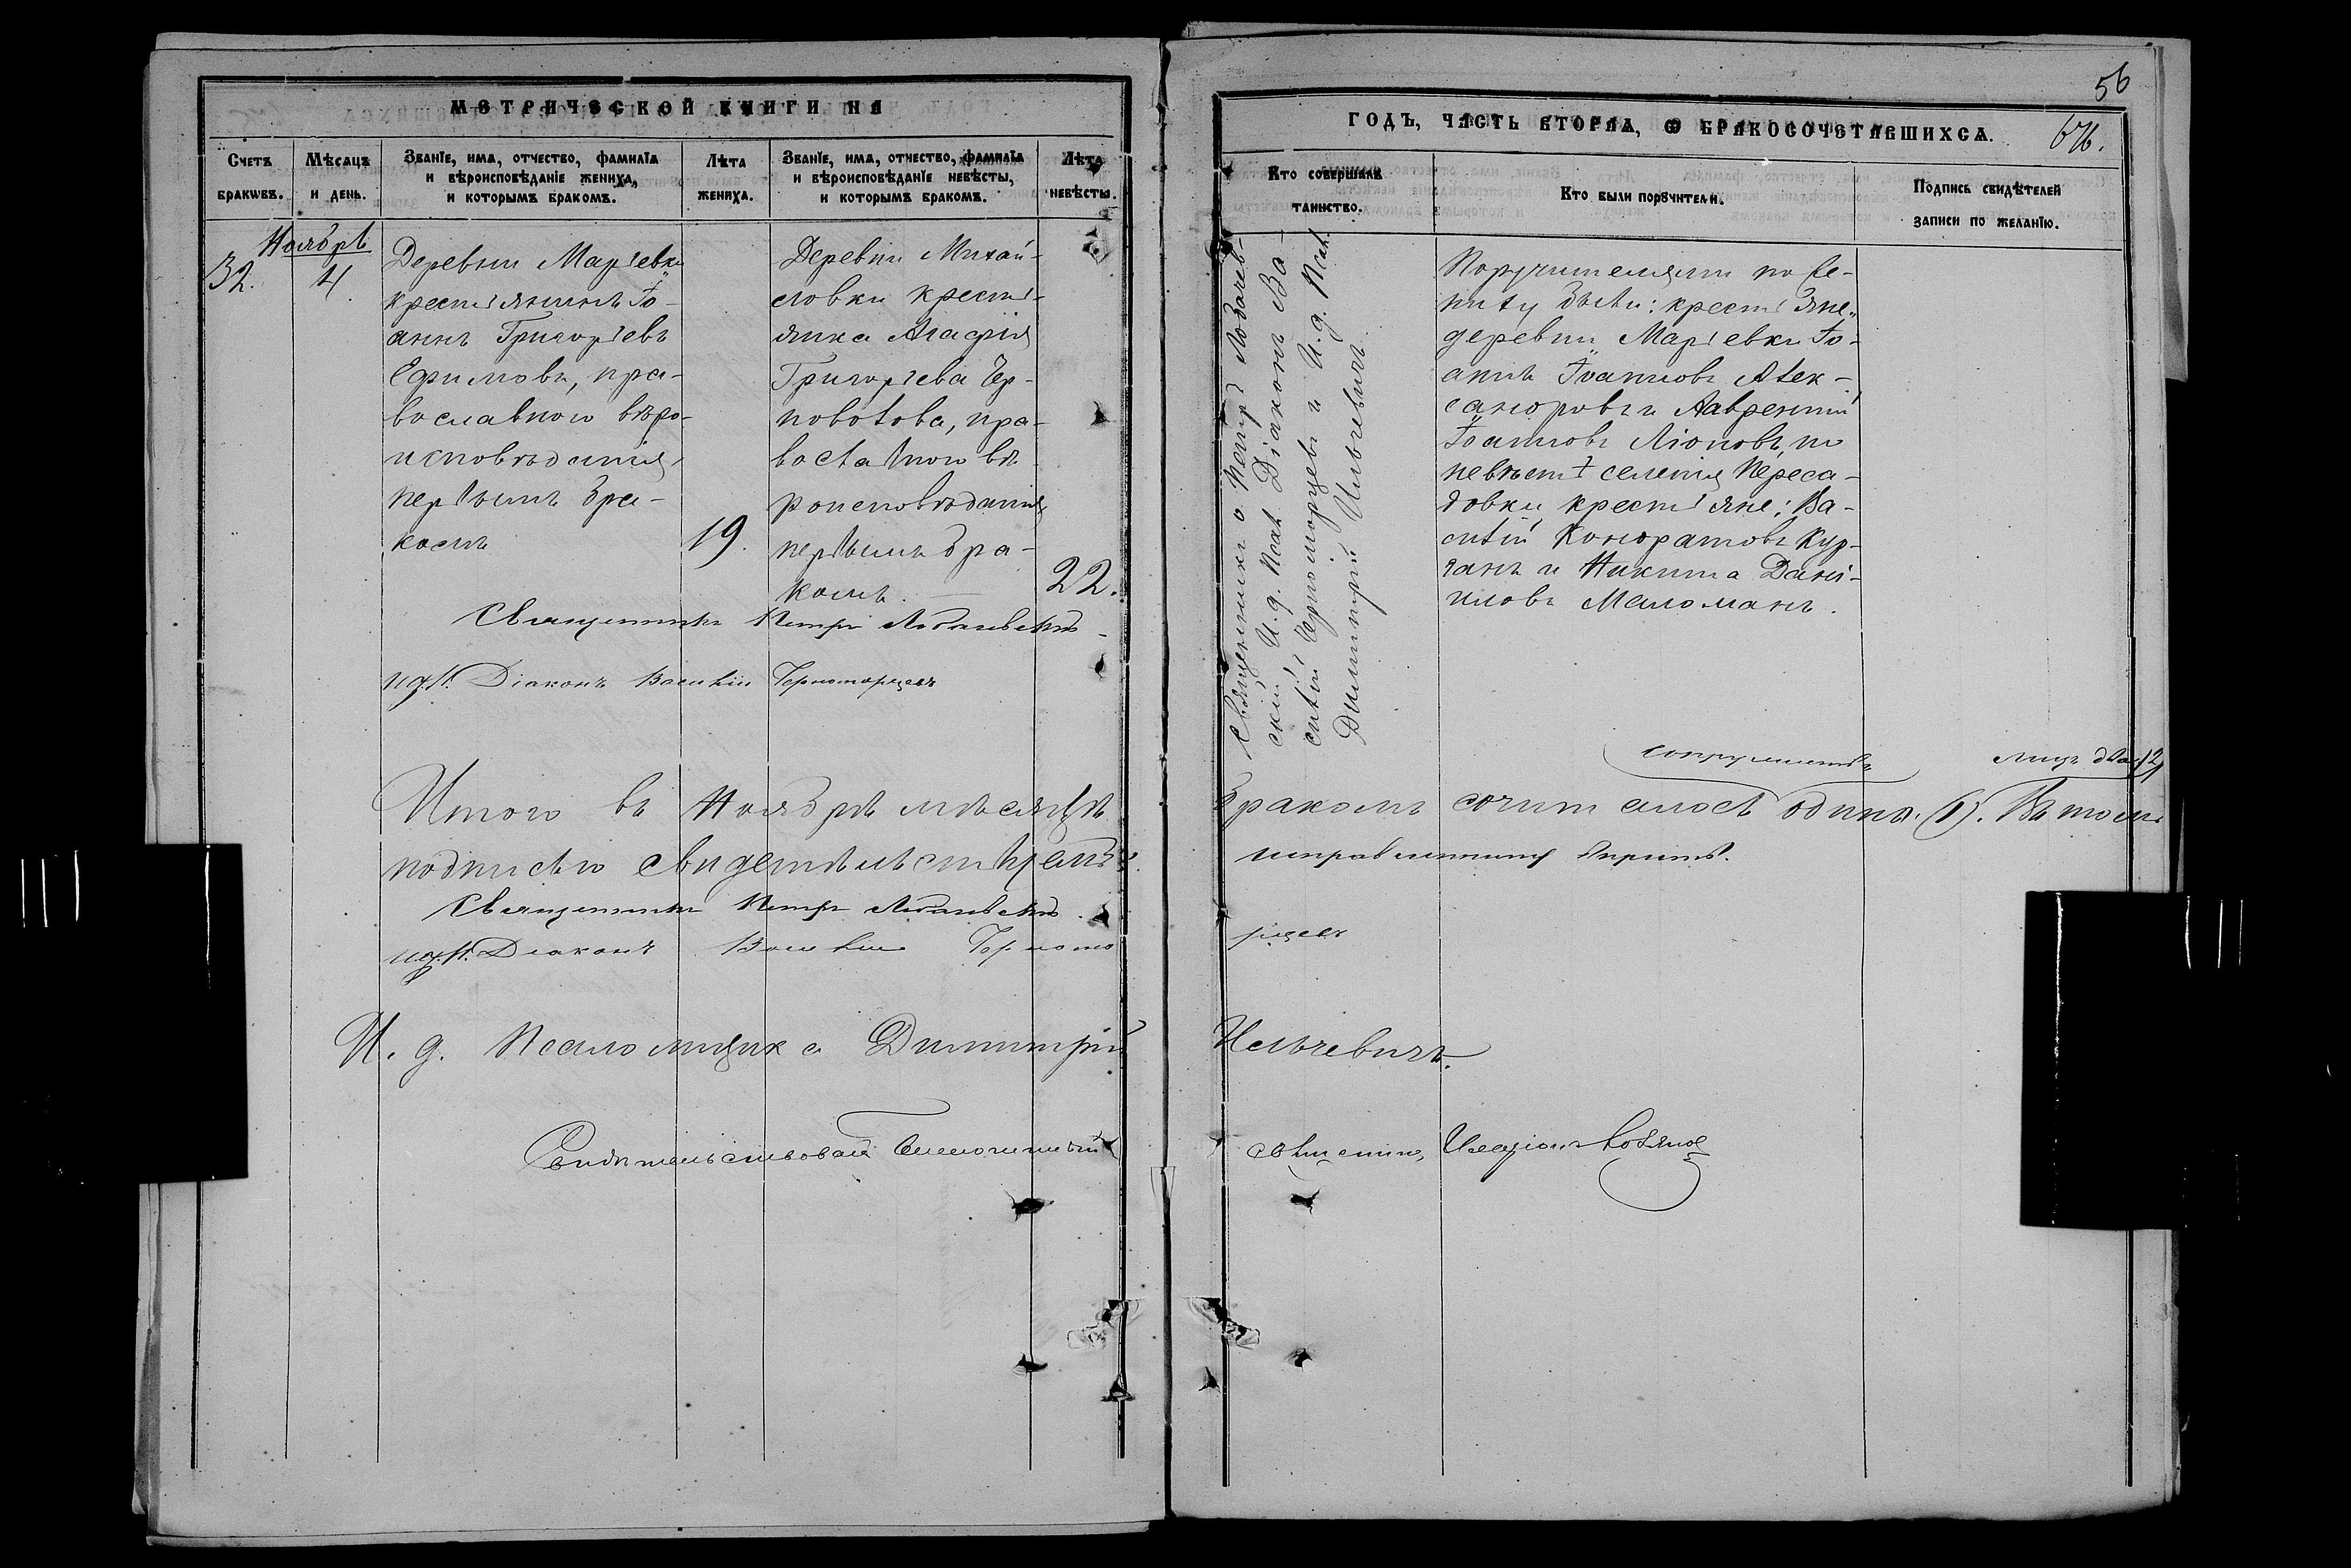 МЕТРИЧЕСКОЙ КНИГИ НА
Счетъ браковъ.
Мѣсяцъ и день.
Званїе, имя, отчество, фамилїя
и вѣроисповѣданїе жениха,
и которымъ бракомъ.
Лѣта
жениха.
Званїе, имя, отчество, фамилїя
и вѣроисповѣданїе невѣсты,
и которымъ бракомъ.
Лѣта
невѣсты.
Ноябрь
32.
4
Деревни Марьевки
крестьянинъ Іо-
аннъ Григорьевъ
Ефимовъ, пра-
вославнаго вѣро-
исповѣданія,
первымъ бра-
комъ
19.
Деревни Михай-
ловки кресть-
янка Агафія
Григорьева Чер-
новолова, пра-
вославнаго вѣ-
роисповѣданія,
первымъ бра-
комъ.
22.
Священникъ Петръ Лобачевскій
и.д.п. Діаконъ Василій Черноморцевъ
Итого въ Ноябрѣ мѣсяцѣ
подписью свидетельствуемъ.
Священникъ Петръ Лобачевскій.
и.д.п. Діаконъ Василій Черномо
И. д. Псаломщика Димитрій
Свидѣтельствовалъ Благочинный
56
ГОДЪ, ЧАСТЬ ВТОРАЯ, Ѡ БРАКОСОЧЕТАВШИХСЯ.
Кто совершалъ
таинство.
Кто были поручители.
Подпись свидѣтелей
записи по желанїю.
Священникъ Петръ Лобачев-
скій И. д. Псал. Діаконъ Ва-
силій Черноморцевъ и И. д. Псал.
Димитрій Ильчевичъ.
Поручителями по же-
ниху были: крестьяне
деревни Марьевки Іо-
аннъ Іоанновъ Алек-
сандровъ и Лаврентій
Іоанновъ Ліоновъ, по
невѣстѣ селенія Переса-
довки крестьяне: Ва-
силій Кондратовъ Кур-
ганъ и Никита Дани-
иловъ Маломанъ.
лицъ два (2)
бракомъ сочиталось одинъ (1). Въ томъ
рцевъ
Ильчевичъ.